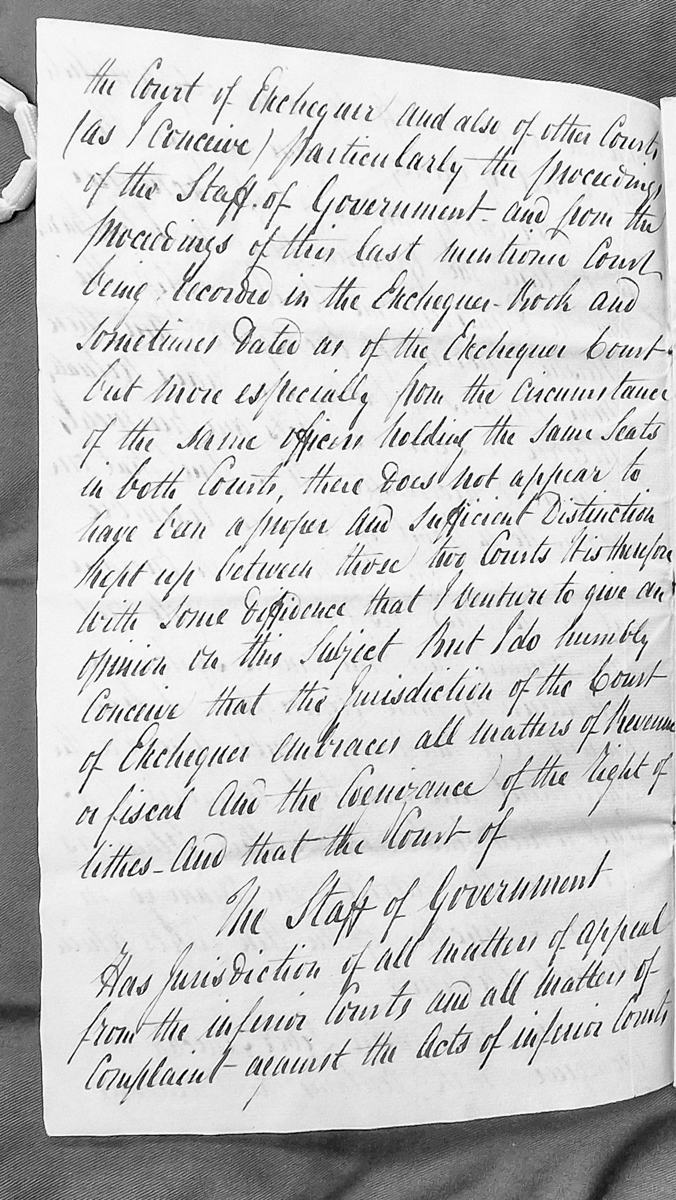 the Court of Exchequer and also of other Courts
(as I conceive) particularly the proceedings
of the Staff. of Government and from the
proceedings of this last mentioned Court
being recorded in the Exchequer Book and
sometimes Dated as of the Exchequer Court
but more especially from the circumstance
of the same officers holding the same Seats
in both Courts, there does not appear to
have been a proper and sufficient Distinction
kept up between those two Courts It is therefore
with some diffidence that I venture to give an
opinion on this Subject But I do humbly
Conceive that the Jurisdiction of the Court
of Exchequer embraces all matters of Revenue
or fiscal and the Cognizance of the right of
tithes - And that the Court of
The Staff of Government
Has Jurisdiction of all matters of appeal
from the inferior Courts and all matters of
Complaint against the Acts of inferior Courts